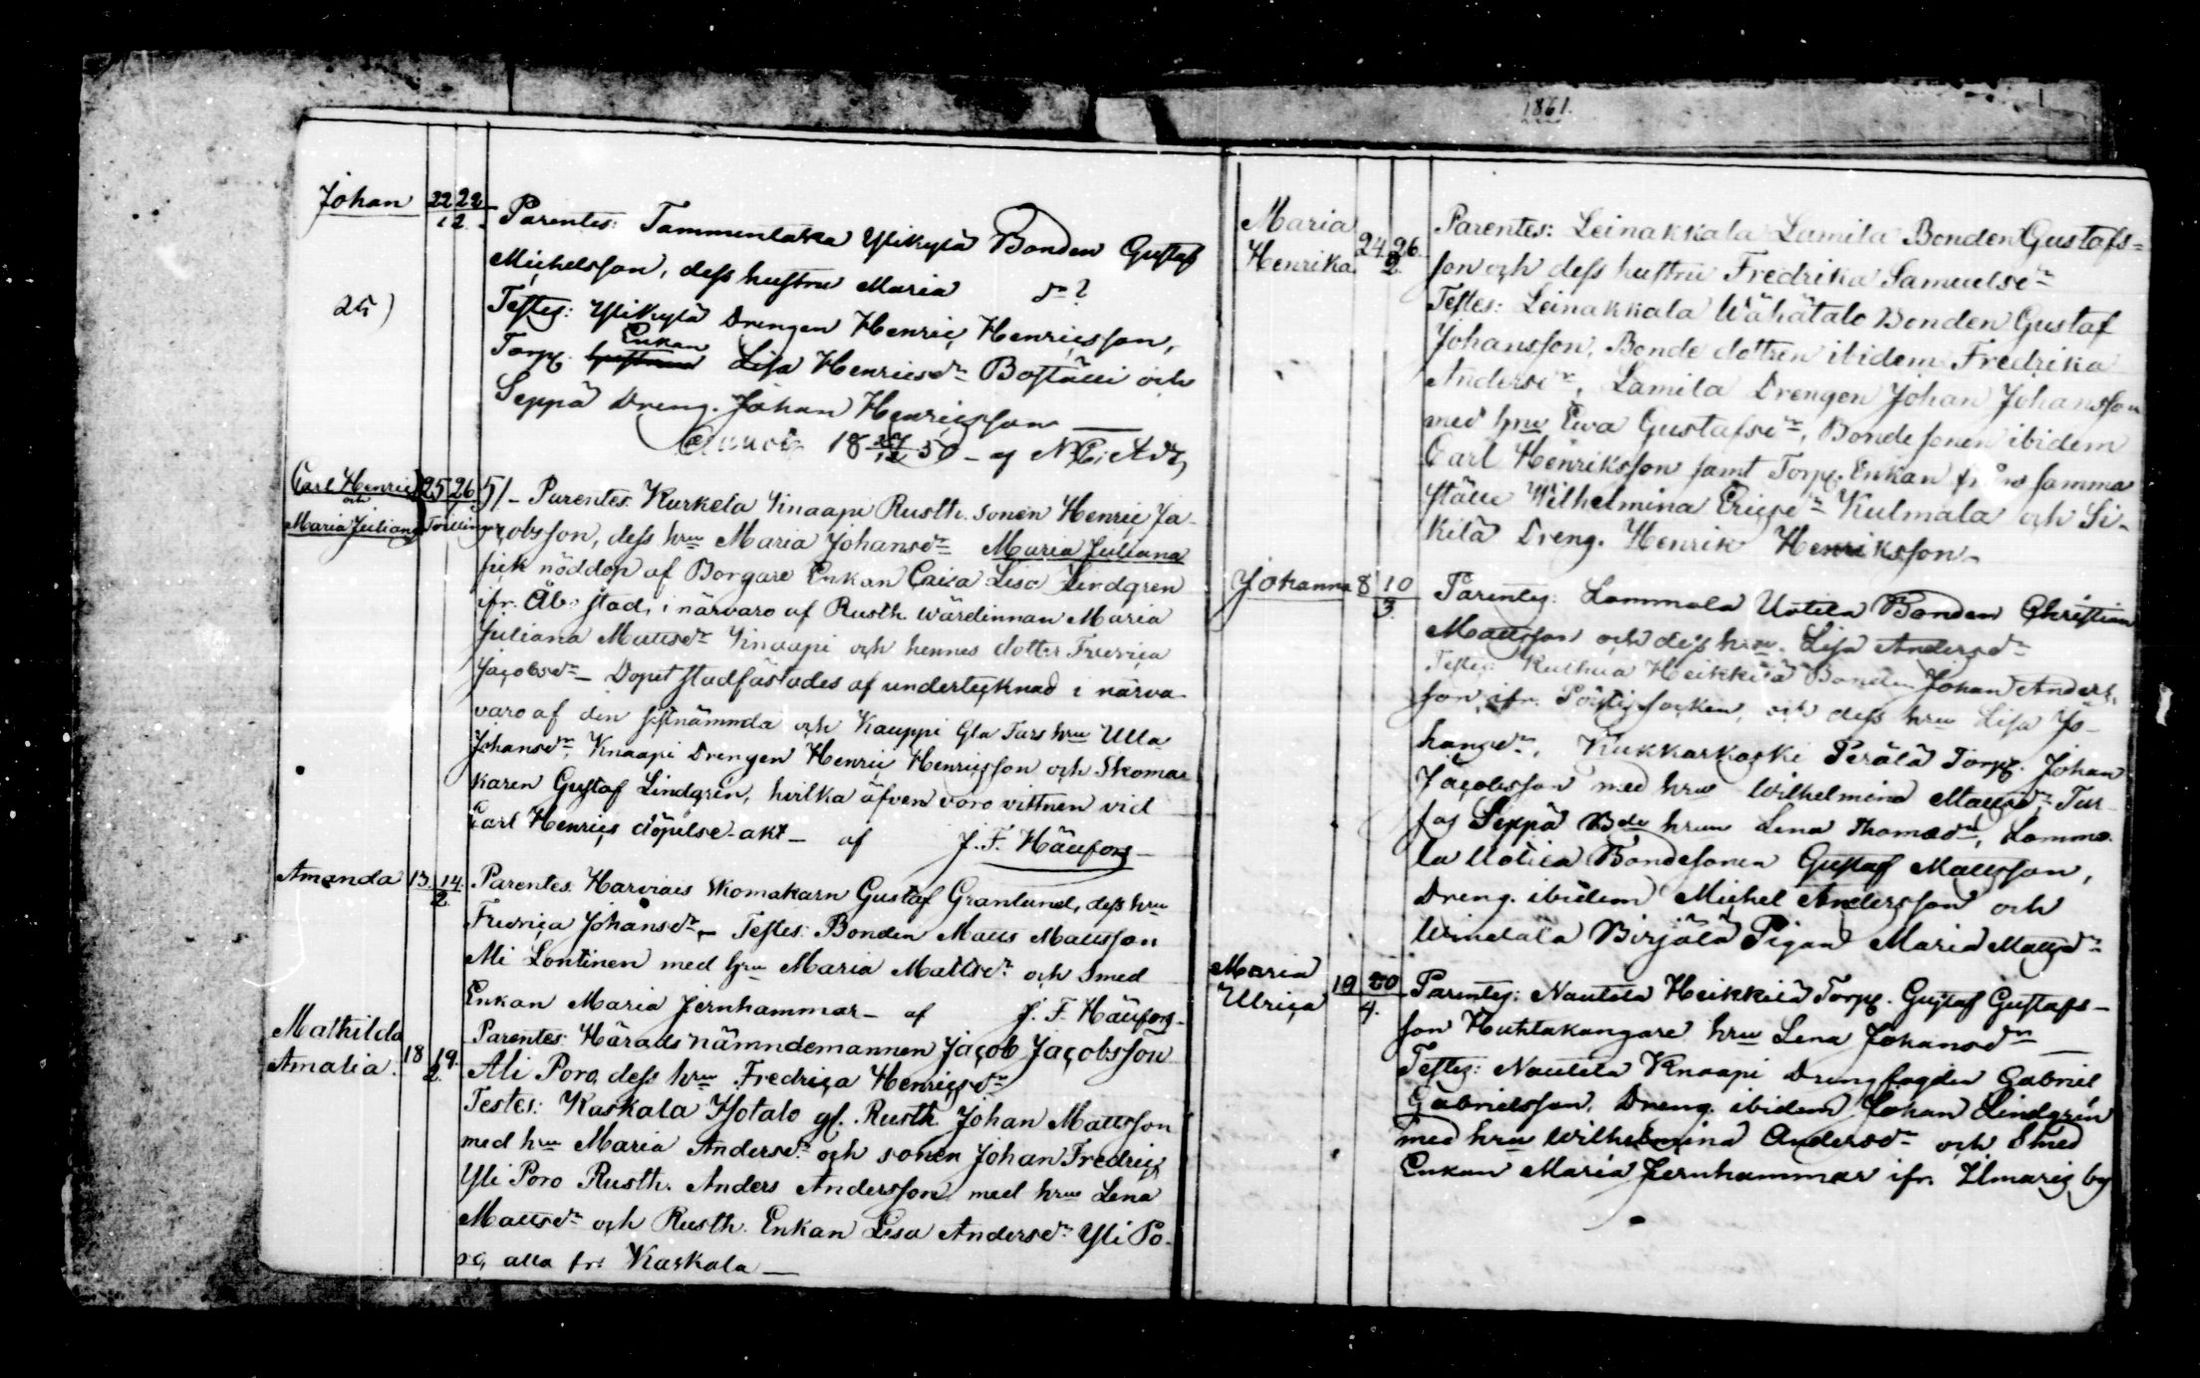 1861.
Johan 22 22
12.
Parentes: Tammentaka Ylikylä Bonden Gustaf
Michelsson, dess hustru Maria dr?
25)
Testes: Ylikylä Drengen Henric Henricsson,
Enkan
Torp. hustrun Lisa Henricsdr och
Seppä Dreng. Johan Henricsson
18 27/12 50 - af
Carl Henric 25 26 51 - Parentes. Kurkela Knaapi Rusth. sonen Henric Ja-
och
Maria Juliana Tvillingar cobsson, dess hru Maria Johansdr Maria Juliana
fick nöddop af Borgare Enkan Caisa Lisa Lindgren
ifr. Åbo stad, i närvaro af Rusth. wärdinnan Maria
Juliana Mattsdr Knaapi och hennes dotter Fredrica
Jacobsdr - Dopet stadfästades af undertecknad i närva-
varo af den sistnämnda och Kauppi Gla Turs hru Ulla
Johansdr, Knaapi Drengen Henric Henricsson och Skoma-
karen Gustaf Lindgrén, hvilka äfven voro vittnen vid
Carl Henrics döpelse-akt - af J. F. Häufors -
Amanda 13. 14.
2.
Parentes. Harviais Skomakarn Gustaf Granlund, dess hru
Fredrica Johansdr - Testes: Bonden Matts Mattsson
Ali Lontinen med hru Maria Mattsdr och Smed
Enkan Maria Jernhammar - af J. F. Häufors -
Mathilda
Amalia. 18 19.
2.
Parentes: Härads nämndemannen Jacob Jacobsson
Ali Poro, dess hru Fredrica Henricsdr
Testes: Kaskala Isotalo gl. Rusth. Johan Mattsson
med hru Maria Andersdr och sonen Johan Fredric,
Yli Poro Rusth. Anders Andersson med hru Lena
Mattsdr och Rusth. Enkan Lisa Andersdr Yli Po-
ro, alla fr. Kaskala -
Maria
Henrika. 24 26.
2.
Parentes: Leinakkala Lamila Bonden Gustafs-
son och dess hustru Fredrika Samuelsdr
Testes: Leinakkala Wähätalo Bonden Gustaf
Johansson, Bonde dottren ibidem Fredrika
Andersdr, Lamila Drengen Johan Johansson
med hru Ewa Gustafsdr, Bondesonen ibidem
Carl Henriksson samt Torp. Enkan från samma
ställe Wilhelmina Ericsdr Kulmala och Si-
kilä Dreng. Henrik Henriksson -
Johanna 8 10
3.
Parentes: Lammala Uotila Bonden Christian
Mattsson och dess hru. Lisa Andersdr
Testes: Heikkilä Bonden Johan Anders-
son ifr. Pöytis socken, och dess hru Lisa Jo-
hansdr, Kukkarkoski Perälä Torp. Johan
Jacobsson med hru Wilhelmina Mattsdr, Tur-
Seppä Bde hrun Lena Thomasdr, Lamma-
la Uotila Bondesonen Gustaf Mattsson,
Dreng. ibidem Michel Andersson och
Birjälä Pigan Maria Mattsdr
Maria
Ulrica 19 20
4.
Parentes: Nautela Heikkilä Torp. Gustaf Gustafs-
son Huhtakangare hru Lena Johansdr -
Testes: Nautela Knaapi Drengfogden Gabriel
Gabrielsson, Dreng. ibidem Johan Lindgrén
med hru Wilhelmina Andersdr och Smed
Enkan Maria Jernhammar ifr. Ilmaris by